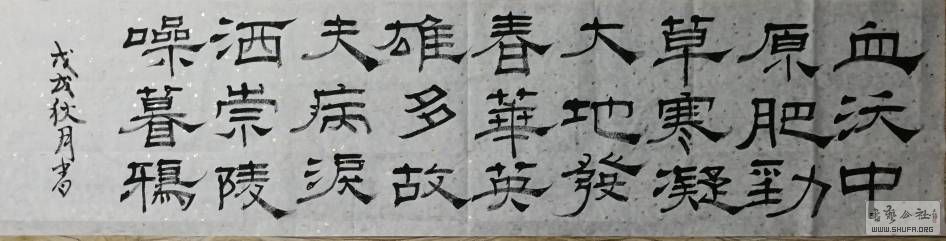 血沃中
原肥勁
草寒凝
大地發
春華英
雄多故
夫病淚
洒崇陵
噪暮鴉
戊戌秋月書
书艺公社
WWW.SHUFA.ORG